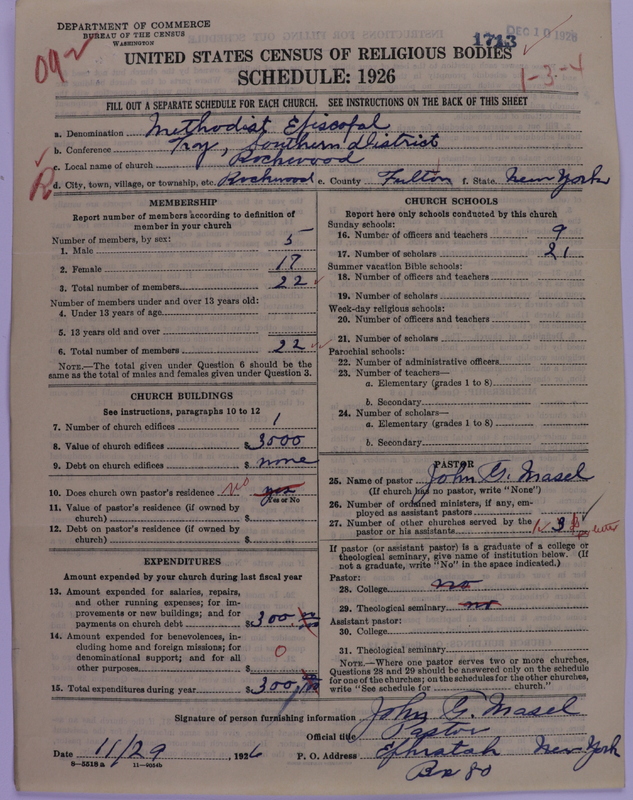 DEPARTMENT OF COMMERCE
BUREAU OF THE CENSUS
WASHINGTON
1713
DEC 10 1926
UNITED STATES CENSUS OF RELIGIOUS BODIES
SCHEDULE: 1926
1-3-4
FILL OUT A SEPARATE SCHEDULE FOR EACH CHURCH. SEE INSTRUCTIONS ON THE BACK OF THIS SHEET
a. Denomination Methodist Episcopal
b. Conference Troy, Southern district
c. Local name of church Rockwood
d. City, town, village, or township, etc. Rockwood e. County Fulton f. State New York
MEMBERSHIP
Report number of members according to definition of member in your church
Number of members, by sex:
1. Male 5
2. Female 17
3. Total number of members 22
Number of members under and over 13 years old:
4. Under 13 years of age
5. 13 years old and over
6. Total number of members 22
NOTE.—The total given under Question 6 should be
same as the total of males and females given under Question 3.
CHURCH BUILDINGS
See instructions, paragraphs 10 to 12
7. Number of church edifices 1
8. Value of church edifices $ 3000
9. Debt on church edifices $ none
10. Does church own pastor's residence no yes
Yes or No
11. Value of pastor's residence (if owned by
church) $
12. Debt on pastor's residence (if owned by
church) $
EXPENDITURES
Amount expended by your church during last fiscal year
13. Amount expended for salaries, repairs,
and other running expenses; for im-
provements or new buildings; and for
payments on church debt $ 300.
14. Amount expended for benevolences,
including home and foreign missions; for
denominational support; and for all
other purposes $ 0
15. Total expenditures during year $ 300
CHURCH SCHOOLS
Report here only schools conducted by this church
Sunday schools:
16. Number of officers and teachers 9
17. Number of scholars 21
Summer vacation Bible schools:
18. Number of officers and teachers
19. Number of scholars
Week-day religious schools:
20. Number of officers and teachers
21. Number of scholars
Parochial schools:
22. Number of administrative officers
23. Number of teachers—
a. Elementary (grades 1 to 8)
b. Secondary
24. Number of scholars—
a. Elementary (grades 1 to 8)
b. Secondary
PASTOR
25. Name of pastor John G. Masel
(If church has no pastor, write "None")
26. Number of ordained ministers, if any, em-
ployed as assistant pastors
27. Number of other churches served by the
pastor or his assistants 3 letter
If pastor (or assistant pastor) is a graduate of a college or
theological seminary, give name of institution below. (If
not a graduate, write "No" in the space indicated.)
Pastor:
28. College no
29. Theological seminary no
Assistant pastor:
30. College
31. Theological seminary
NOTE.—Where one pastor serves two or more churches,
Questions 28 and 29 should be answered only on the schedule
for one of the churches; on the schedules for the other churches,
write "See schedule for church."
Signature of person furnishing information John G. Masel
Official title Pastor
Date 11/29, 1926 P. O. Address Ephratah New York
8-5518a 11-9054b Box 80